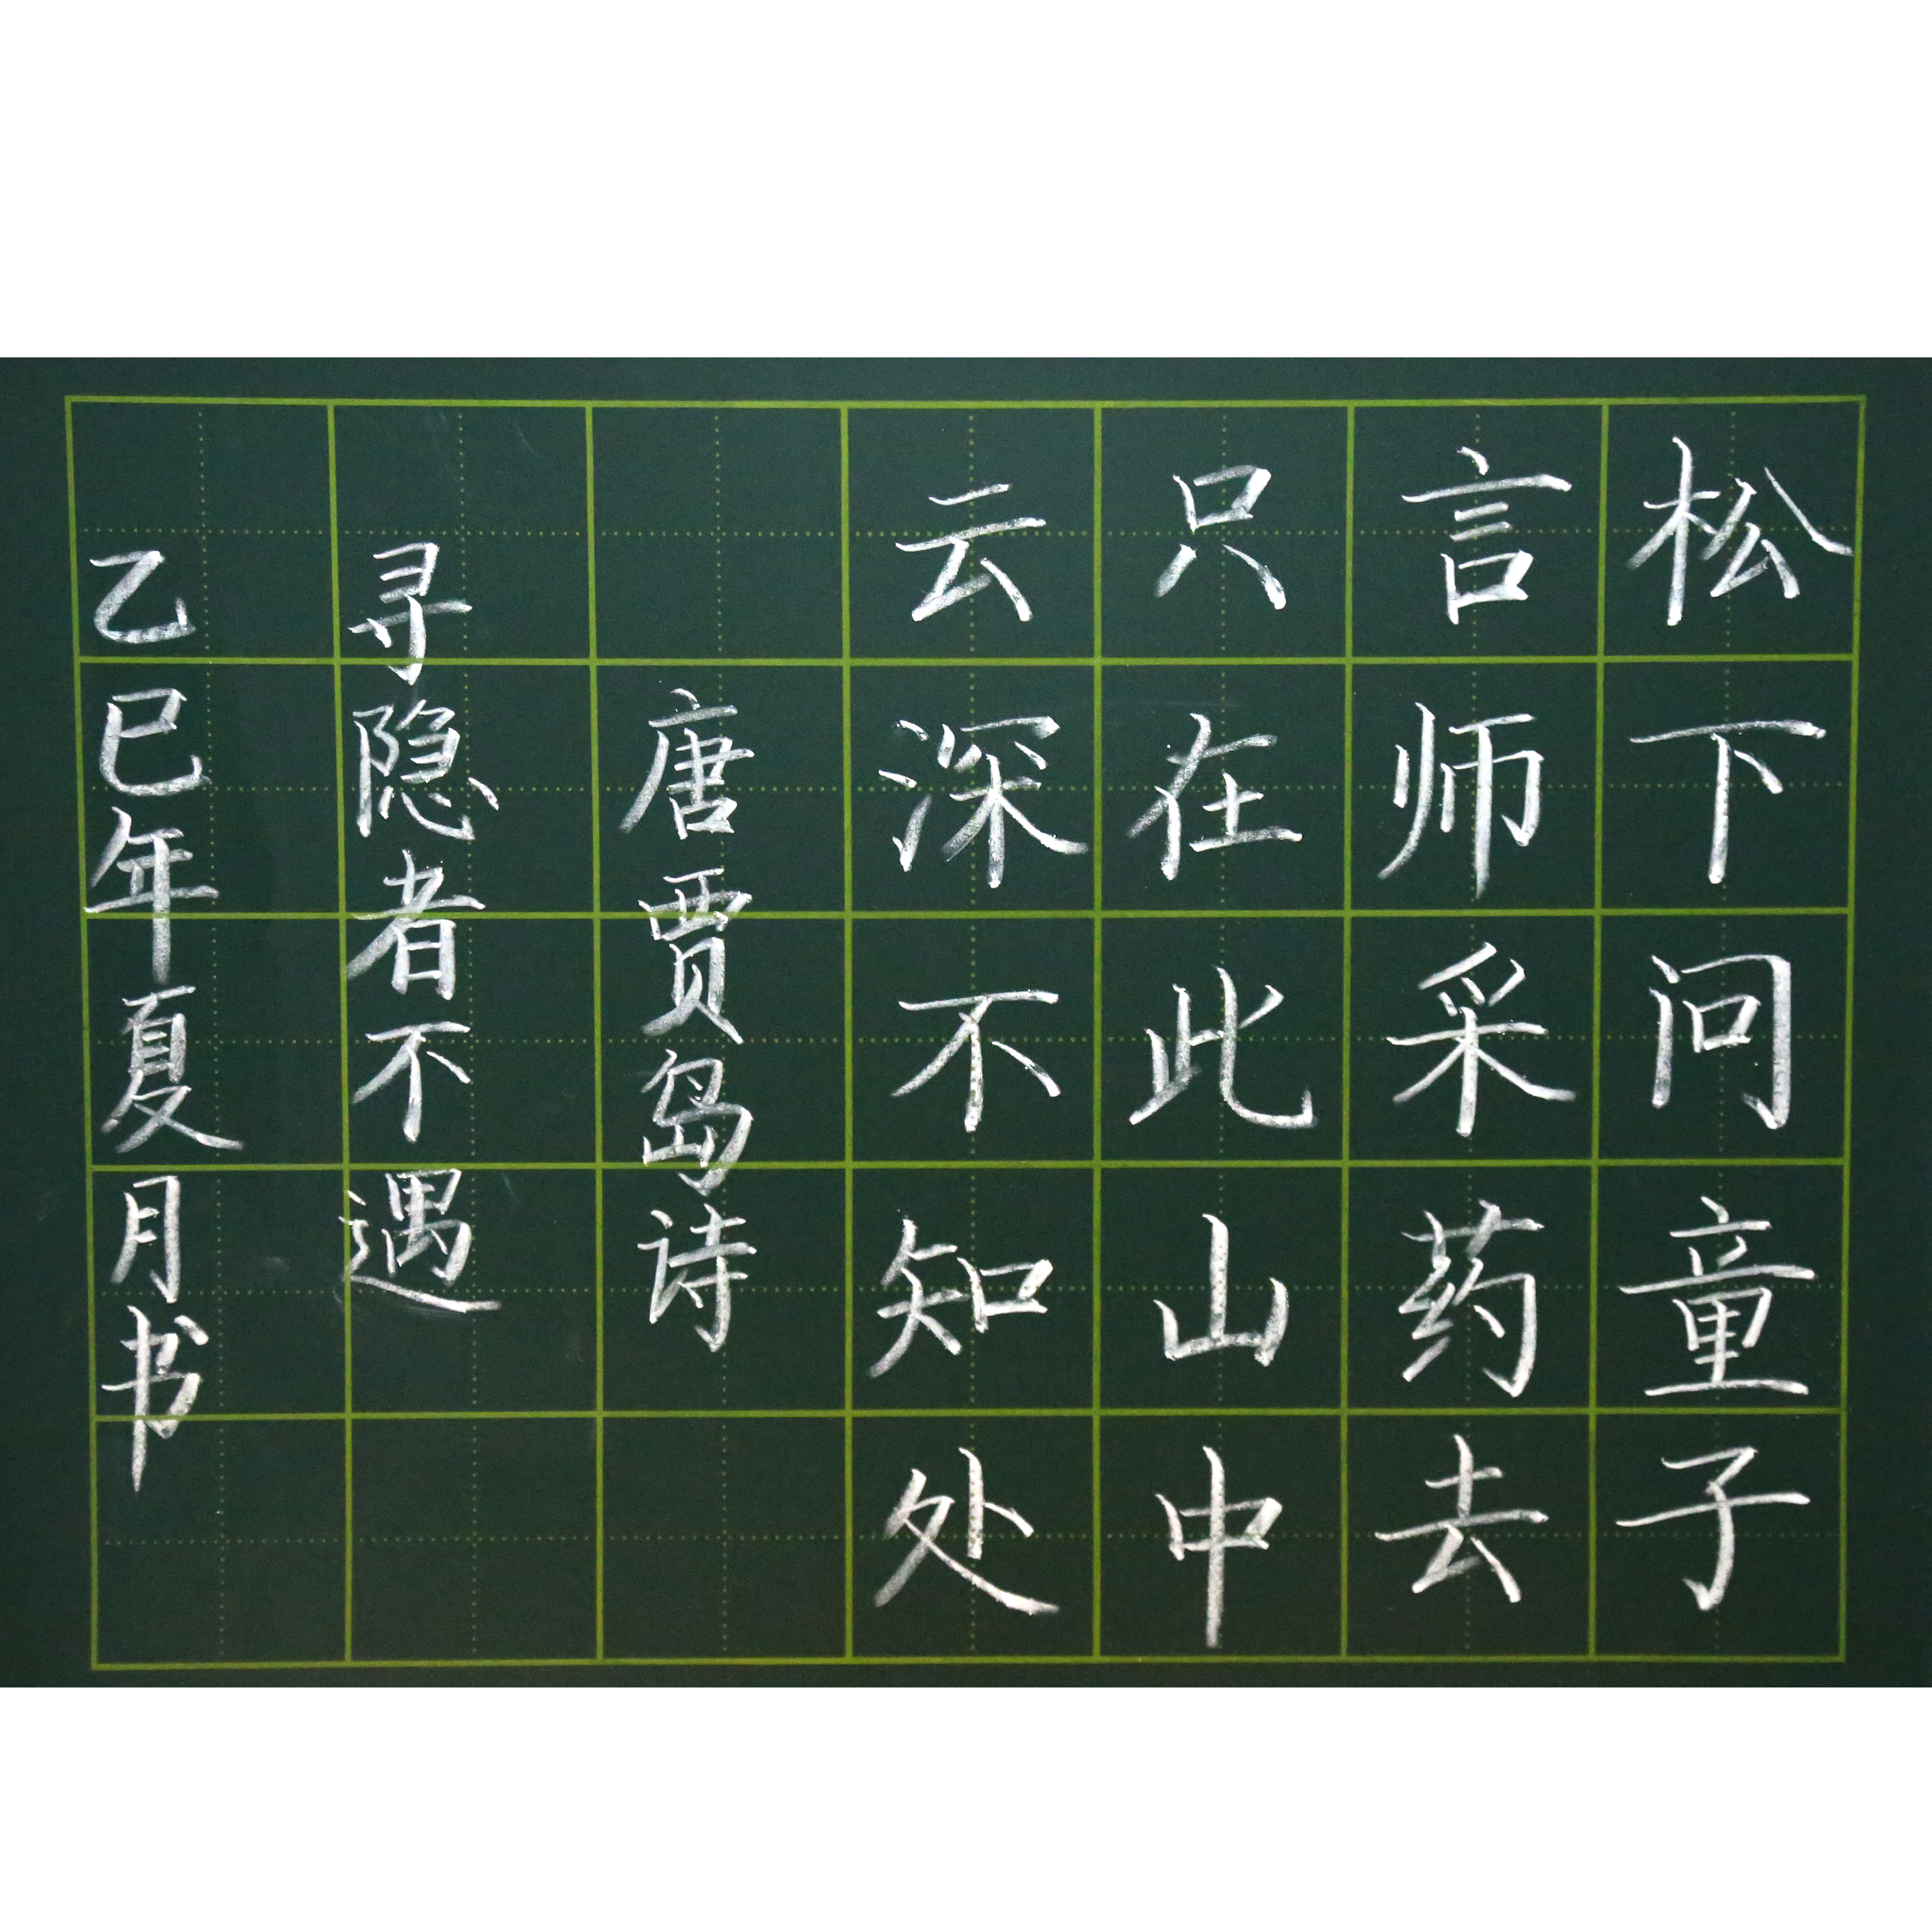 松下问童子
言师采药去
只在此山中
云深不知处
唐贾岛诗
寻隐者不遇
乙巳年夏月书